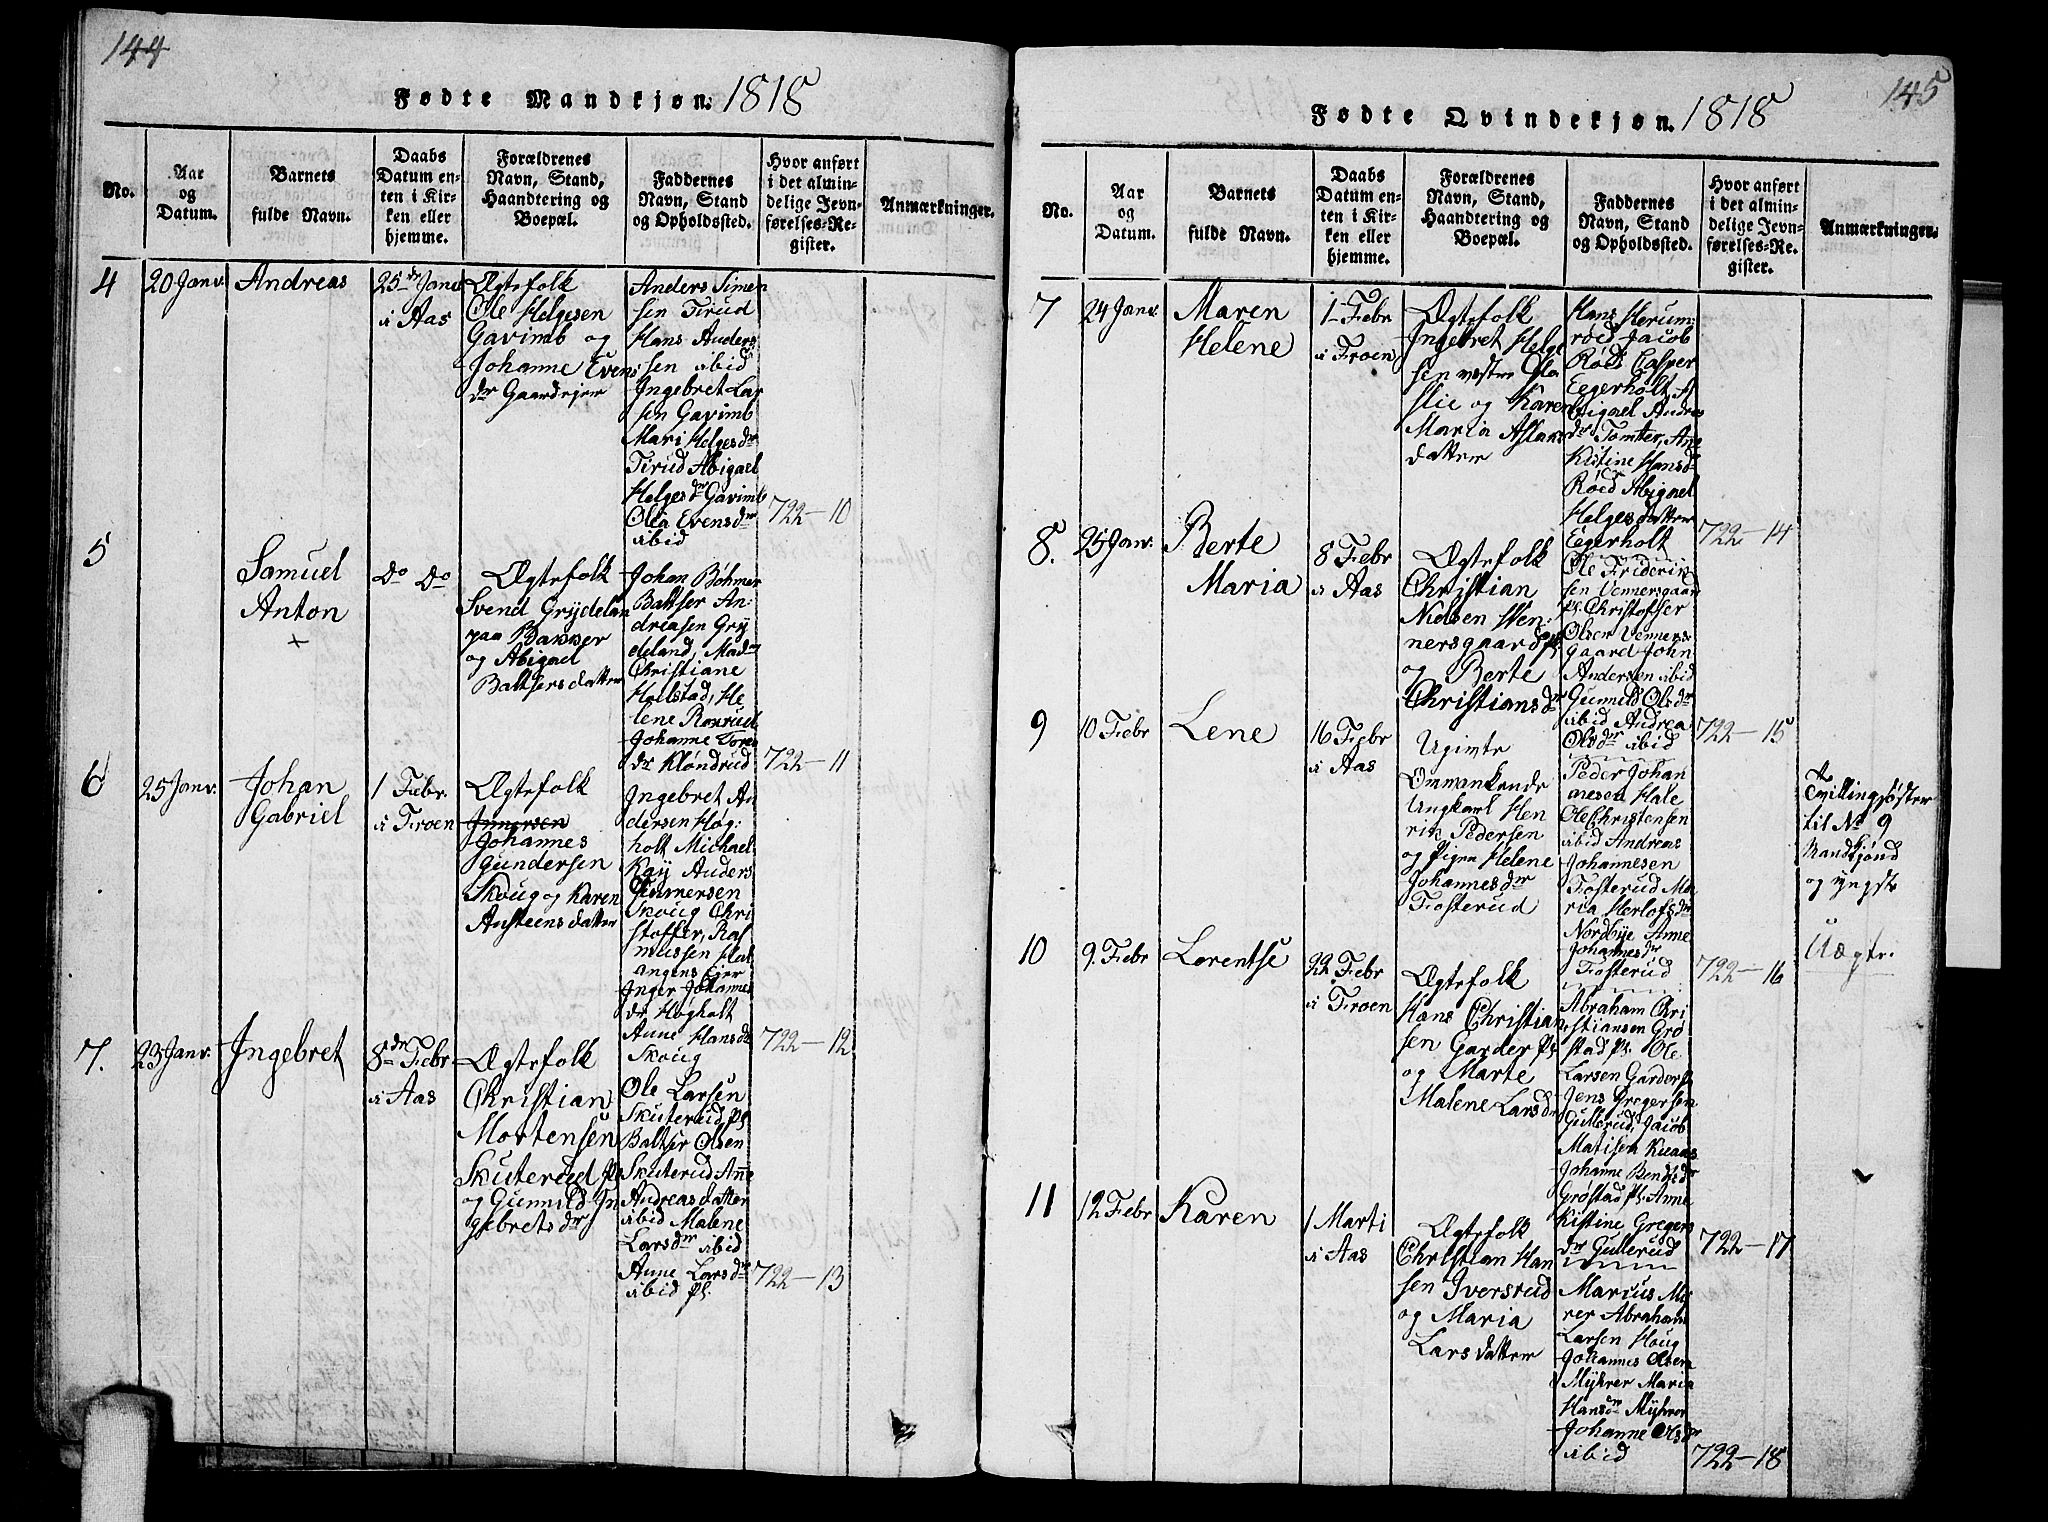 144
Fødte Mandkjøn. 1818
No.
Aar
og
Datum.
Barnets
fulde Navn.
Daabs
Datum en-
ten i Kir-
ken eller
hjemme.
Forældrenes
Navn, Stand,
Haandtering og
Boepæl.
Faddernes
Navn, Stand
og Opholdssted.
Hvor anført
i det almin-
delige Jevn-
førelses-Re-
gister.
Anmærkninger.
4
20 Janv.
Andreas
25de Janv
i Aas
Ægtefolk
Ole Helgesen
Gavimb og
Johanne Evens
dr Gaardejer
Anders Simen
sen Tirud
Hans Anders
sen ibid
Ingebret Lar
sen Gavimb
Mari Helgesdr
Tirud Abigael
Helgesdr Gavimb
Olea Evensdr
ibid
722—10
5
Samuel
Anton
+
do do
Ægtefolk
Svend Grydelan
paa Bakker
og Abigael
Baltsersdatter
Johan Böhmer
Baltser An:
dreasen Gry
deland, Madm
Christiane
Holstad, He
lene Roxrud
Johanne Tores
dr Kløndrud
722—11
6
25 Janv.
Johan
Gabriel
1 Febr
i Froen
Ægtefolk
Johannes
Gundersen
Skoug og Karen
Austeensdatter
Ingebret An
dersen Høg:
holt Michael
Kay Anders
Gunnersen
Skoug Chri
stoffer Ras
mussen Hal
angens Eier
Inger Johannes
dr Høgholt
Anne Hansdr
Skoug
722—12
7.
23 Janv.
Ingebret
8de Febr
i Aas
Ægtefolk
Christian
Mortensen
Skuterud pl
og Gunnild In
gebretsdr
Ole Larsen
Skuterud pl.
Baltser Olsen
Skuterud Anne
Andreasdatter
ibid Malene
Larsdr ibid
Anne Larsdr
ibid pl.
722—13
145
Fødte Qvindekjøn. 1818
No.
Aar
og
Datum.
Barnets
fulde Navn.
Daabs
Datum en-
ten i Kir-
ken eller
hjemme.
Forældrenes
Navn, Stand,
Haandtering og
Boepæl.
Faddernes
Navn, Stand
og Opholdssted.
Hvor anført
i det almin-
delige Jevn-
førelses-Re-
gister.
Anmærkninger.
7
24 Janv.
Maren
Helene
1 Febr
i Froen
Ægtefolk
Ingebret Helge
sen vestre Gla
slie og Karen
Maria Aslaks
datter
Hans Herum:
roed Jacob
Røed Casper
Eegerholt, A
bigael Andres
dr Tomter, Ane
Kistine Hansdr
Røed Abigael
Helgesdatter
Egerholt
722—14
8.
25 Janv.
Berte
Maria
8 Febr
i Aas
Ægtefolk
Christian
Nielsen Wen:
nersgaard pl.
og Berte
Christiansdr
Ole Friderik
sen Vennersgaard
pl. Christofser
Olsen Venners
gaard John
Andersen ibid
Gunnild Olsdr
ibid Andrea
Olsdr ibid
722—15
9
10 Febr
Lene
16 Febr
i Aas
Ugivte
Ommankende
Ungkarl Hen
rik Pedersen
og Pigen Helene
Johannesdr
Fosterud
Peder Johan
nesen Hale
Ole Christensen
ibid Andreas
Johannesen
Fosterud Ma
ria Herlofsdr
Nordbye Anne
Johannesdr
Fosterud
722—16
Tvillingsöster
til No 9
Mandkjönd
og yngste
Uægte.
10
9. Febr
Lorentse
22 Febr
i Froen
Ægtefolk
Hans Christian
sen Garder pl.
og Marte
Malene Larsdr
Abraham Chri
stiansen Grø
stad pl. Ole
Larsen Garder
Jens Gregersen
Gullerud, Jacob
Matisen Knaas
Johanne Bendtsdr
Grøstad pl. Anne
Kistine Gregers
dr Gullerud
722—17
11
12 Febr
Karen
1 Marti
i Aas
Ægtefolk
Christian Han
sen Iversrud
og Maria
Larsdatter
Marcus My
rer Abraham
Larsen Houg
Johannes Olsen
Myhrer Maria
Hansdr Myhrer
Johanne Olsdr
ibid
722—18